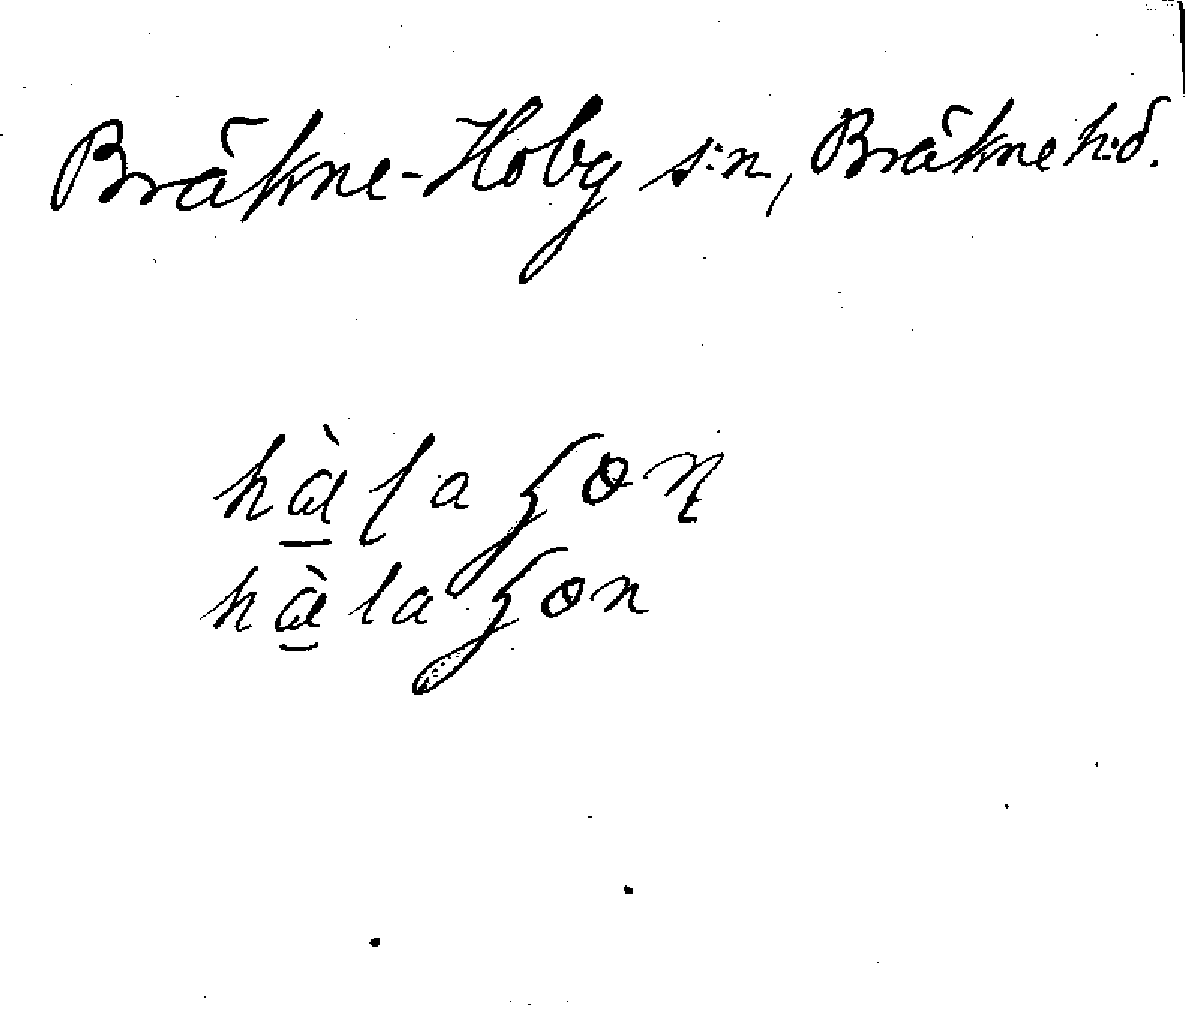 Bräkne-Hoby s:n, Bräkne h:d.
hàlaʒon
hàlaʒon